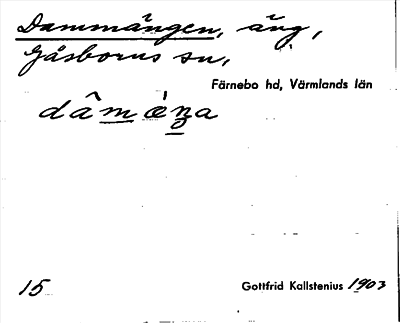 Dammängen, äng,
Gåsborns sn,
Färnebo hd, Värmlands län
dâmèŋa
15
Gottfrid Kallstenius 1903